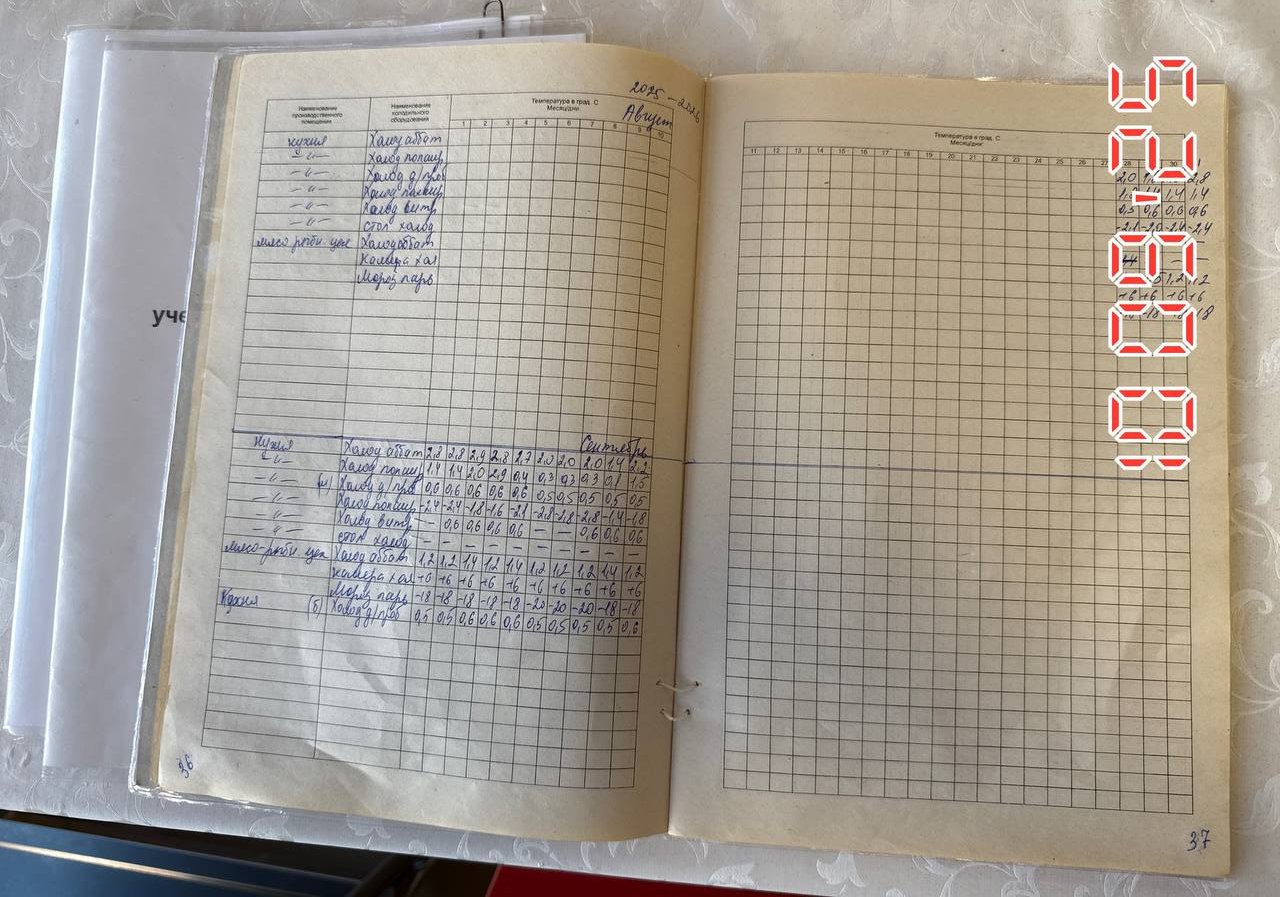 2025-2026
Наименование производственного помещения
Наименование холодильного оборудования
Температура в град. С
Месяц/дни:
Август
1 2 3 4 5 6 7 8 9 10
кухня Холод аббат
-"- Холод
-"- Холод д/проб
-"- Холод
-"- Холод витр
-"- стол холод
мясо рыбн. цех Холод аббат
Камера хол
Мороз ларь
уче
Сентябрь
кухня Холод аббат 2,8 2,8 2,9 2,8 2,7 2,0 2,0 2,0 1,4 2,2
-"- Холод 1,4 1,4 2,0 2,9 0,4 0,3 0,3 0,3 0,8 1,5
-"- (м) Холод д/проб 0,6 0,6 0,6 0,6 0,6 0,5 0,5 0,5 0,5 0,5
-"- Холод -24 -24 -18 -16 -21 -2,8 -2,8 -2,8 -1,4 -1,8
-"- Холод витр - 0,6 0,6 0,6 0,6 - - 0,6 0,6 0,6
-"- стол холод - - - - - - - - - -
мясо-рыбн. цех Холод аббат 1,2 1,2 1,4 1,2 1,4 1,2 1,2 1,2 1,4 1,2
камера хол +6 +6 +6 +6 +6 +6 +6 +6 +6 +6
Мороз ларь -18 -18 -18 -18 -18 -20 -20 -20 -18 -18
Кухня (б) Холод д/проб 0,5 0,5 0,6 0,6 0,6 0,5 0,5 0,5 0,5 0,6
36
Температура в град. С
Месяц/дни:
11 12 13 14 15 16 17 18 19 20 21 22 23 24 25 26 27 28 30
2,0 2,8
1,4 1,4
0,5 0,6 0,6 0,6
-2,1 -20 -24 -2,4
1,2 1,2
+6 +6 +6 +6
-18 -18
37
10 09 '25